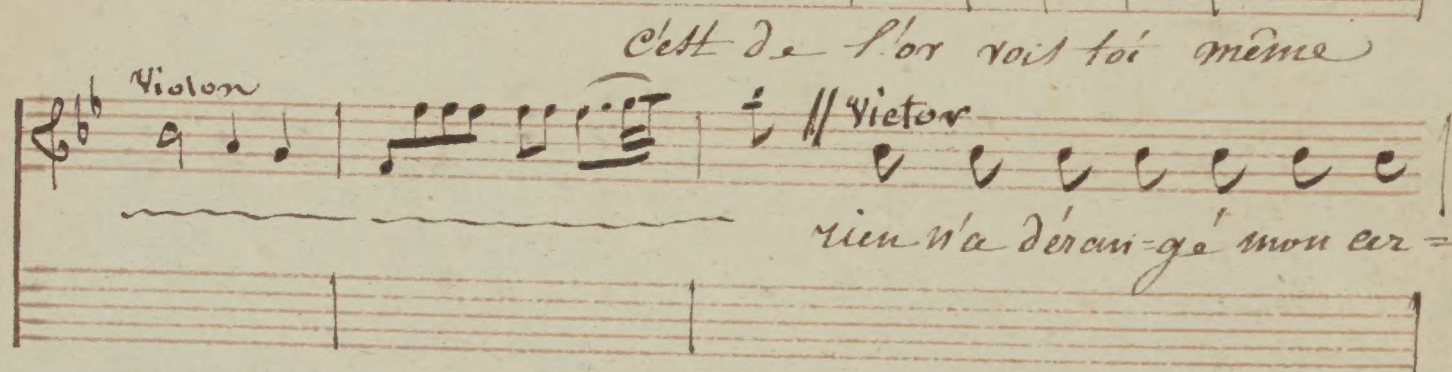 c'est de l'or vois toi même
Violon
Victor
rien n'a déran=gé mon cer=